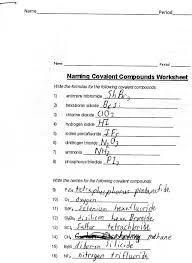 Name Period
Name Period
Naming Covalent Compounds Worksheet
Write the formulas for the following covalent compounds:
1) antimony tribromide SbBr3
2) hexaboron silicide B6Si
3) chlorine dioxide ClO2
4) hydrogen iodide HI
5) iodine pentafluoride IF5
6) dinitrogen trioxide N2O3
7) ammonia NH3
8) phosphorus triiodide PI3
Write the names for the following covalent compounds:
9) P4S5 tetraphosphorus pentasulfide
10) O2 oxygen
11) SeF6 selenium hexafluoride
12) Si2Br6 disilicon hexabromide
13) SCl4 sulfur tetrachloride
14) CH4 methane
15) B2Si diboron silicide
16) NF3 nitrogen trifluoride